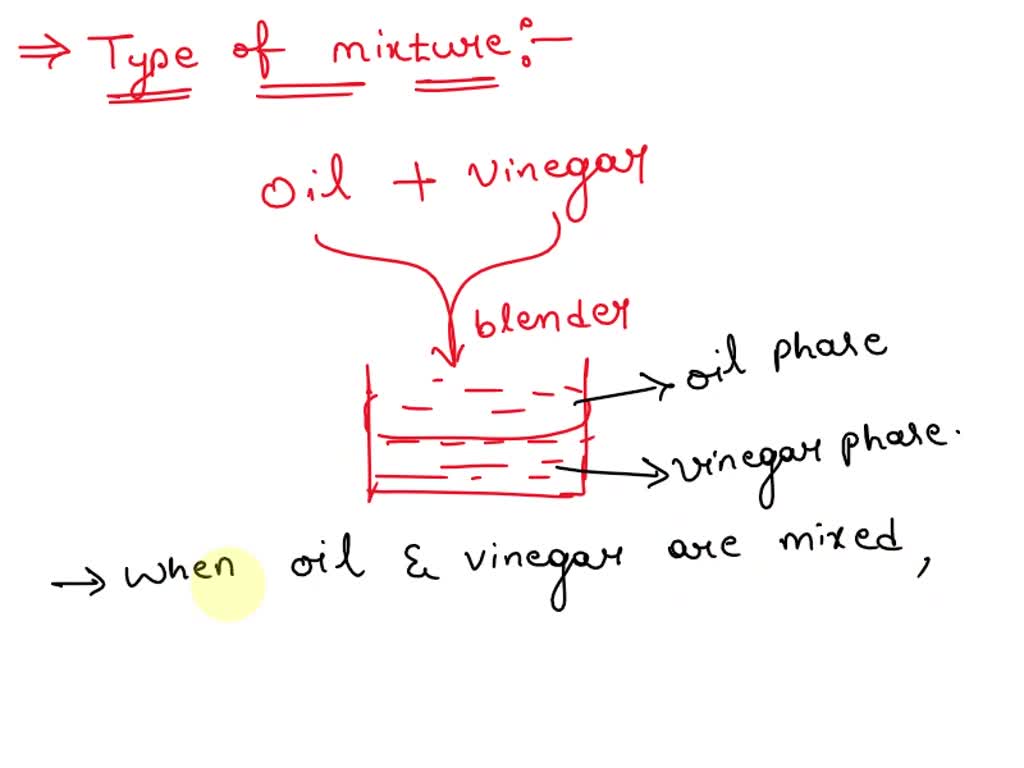 ⇒ Type of mixture:-
oil + vinegar
blender
oil phase
vinegar phase.
→ When oil & vinegar are mixed,